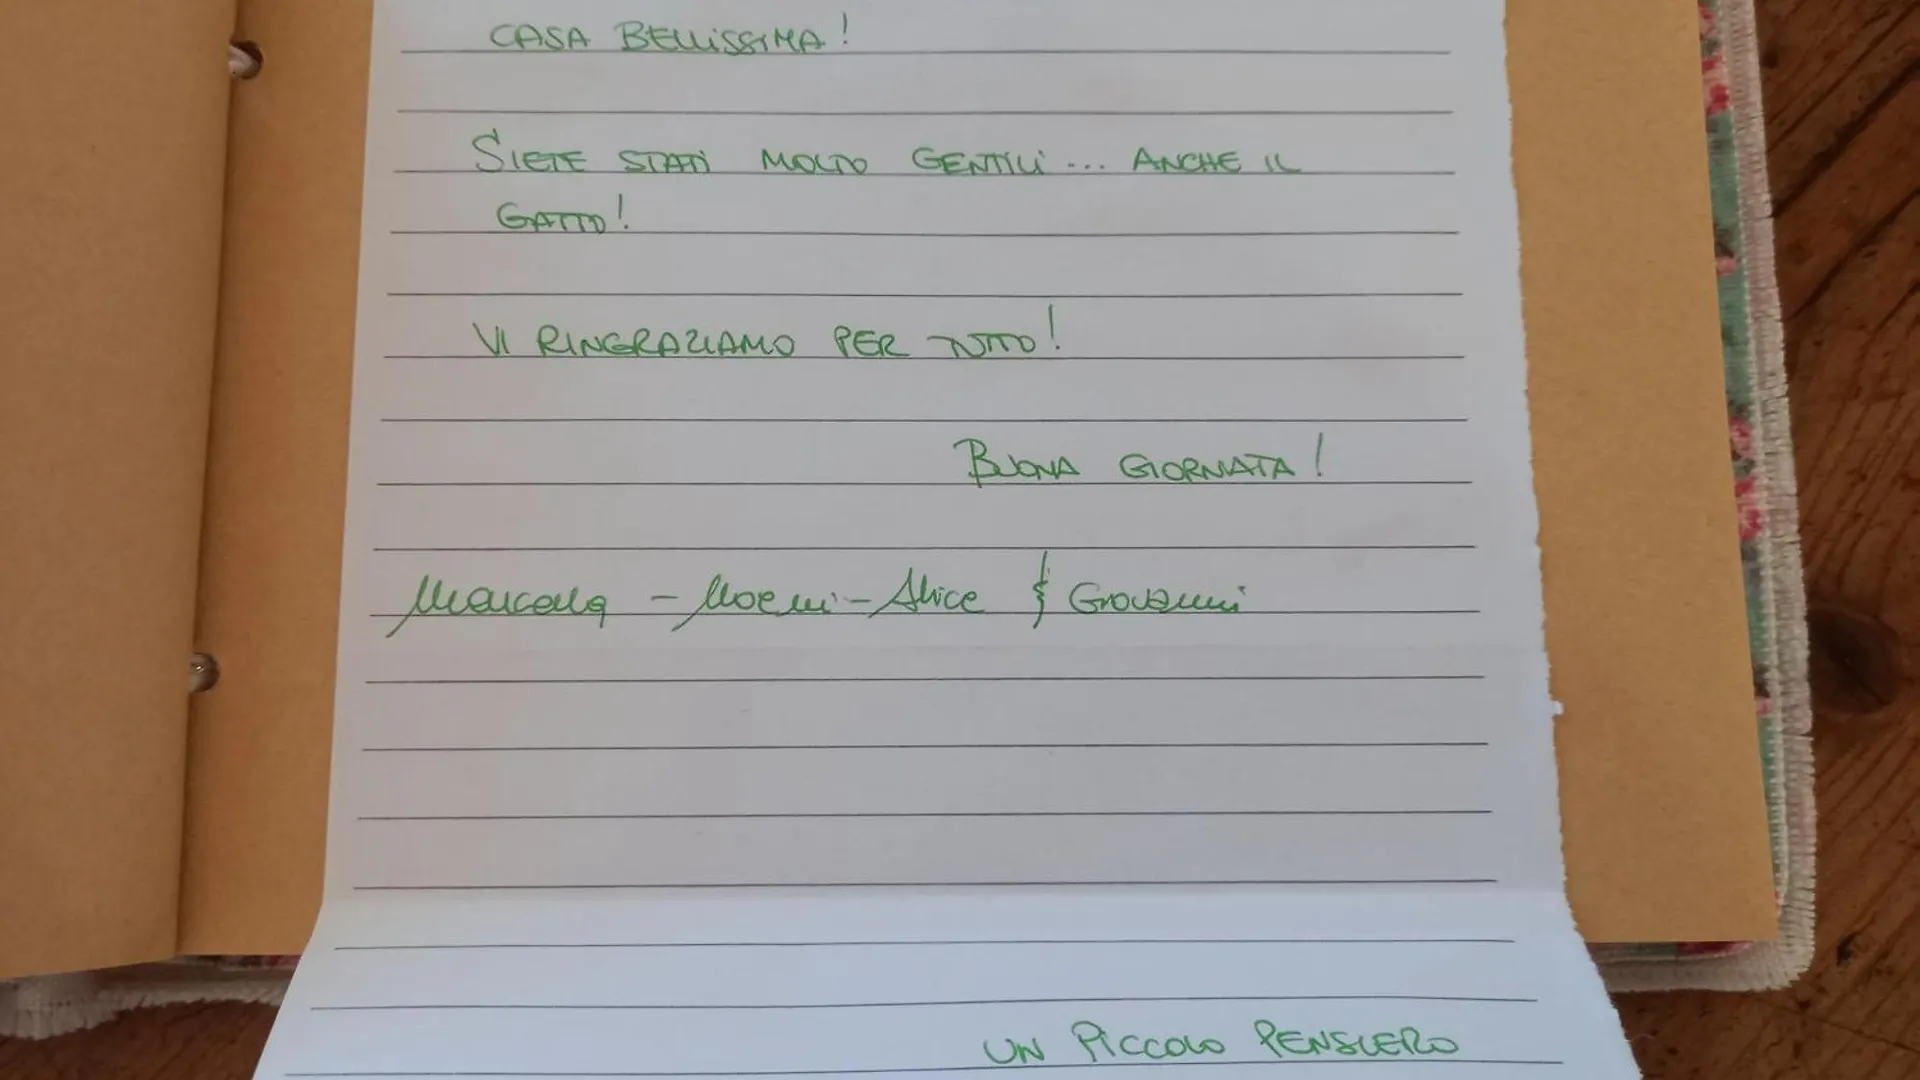 CASA BELLISSIMA!
SIETE STATI MOLTO GENTILI... ANCHE IL
GATTO!
VI RINGRAZIAMO PER TUTTO!
BUONA GIORNATA!
Marcella - Noemi - Alice & Giovanni
UN PICCOLO PENSIERO